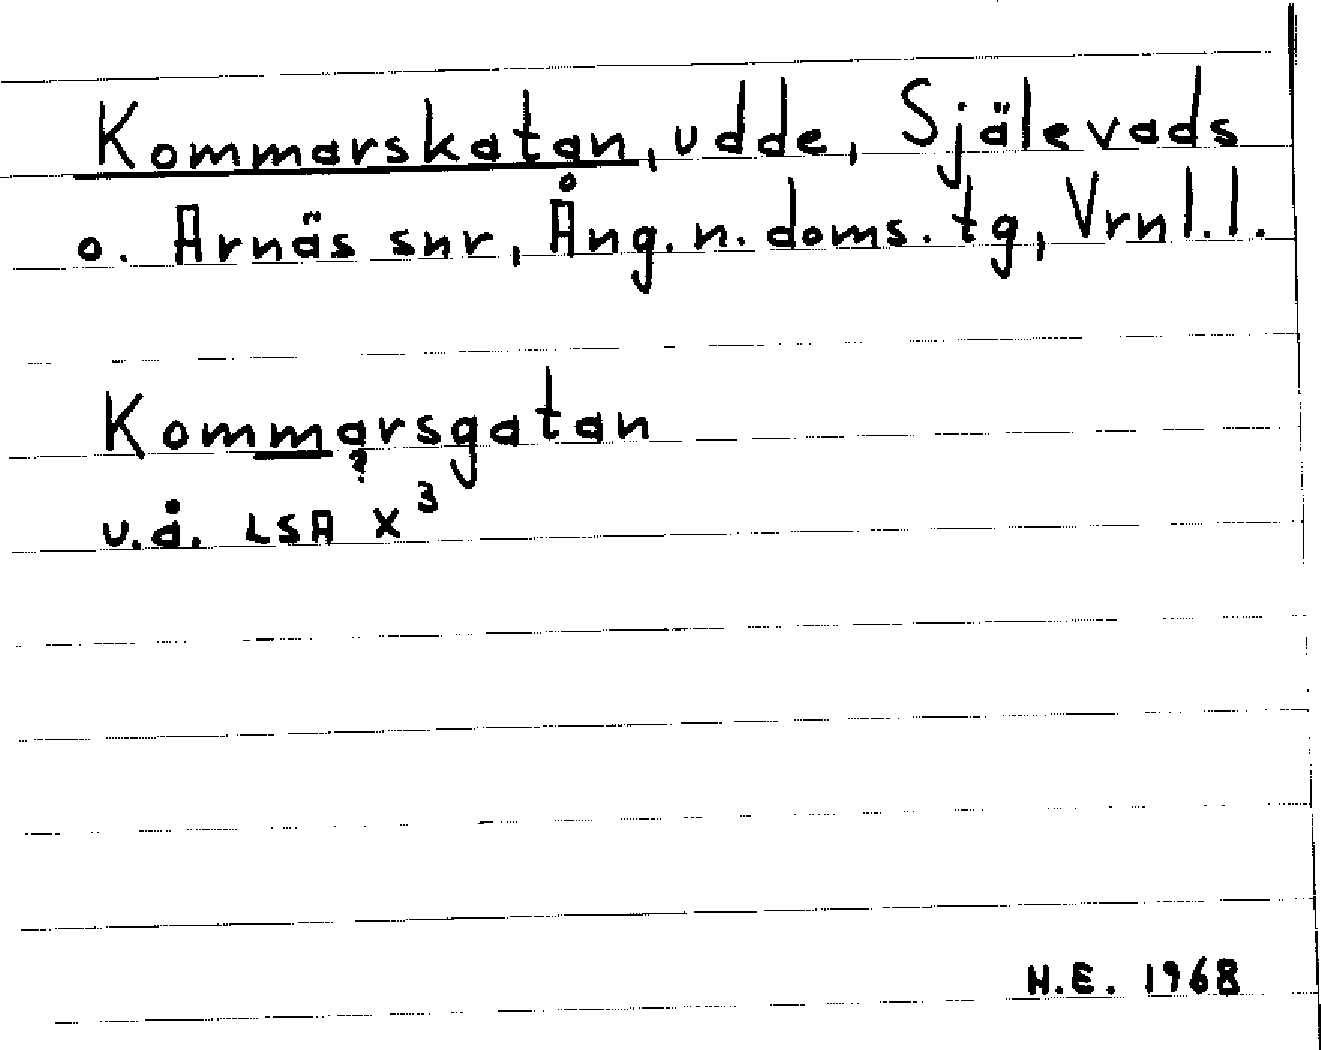 Kommarskatan, udde, Själevads
o. Arnäs snr, Ång. n. doms. tg, Vrnl. l.
Kommarsgatan
?
u.å. LSA X³
H.E. 1968